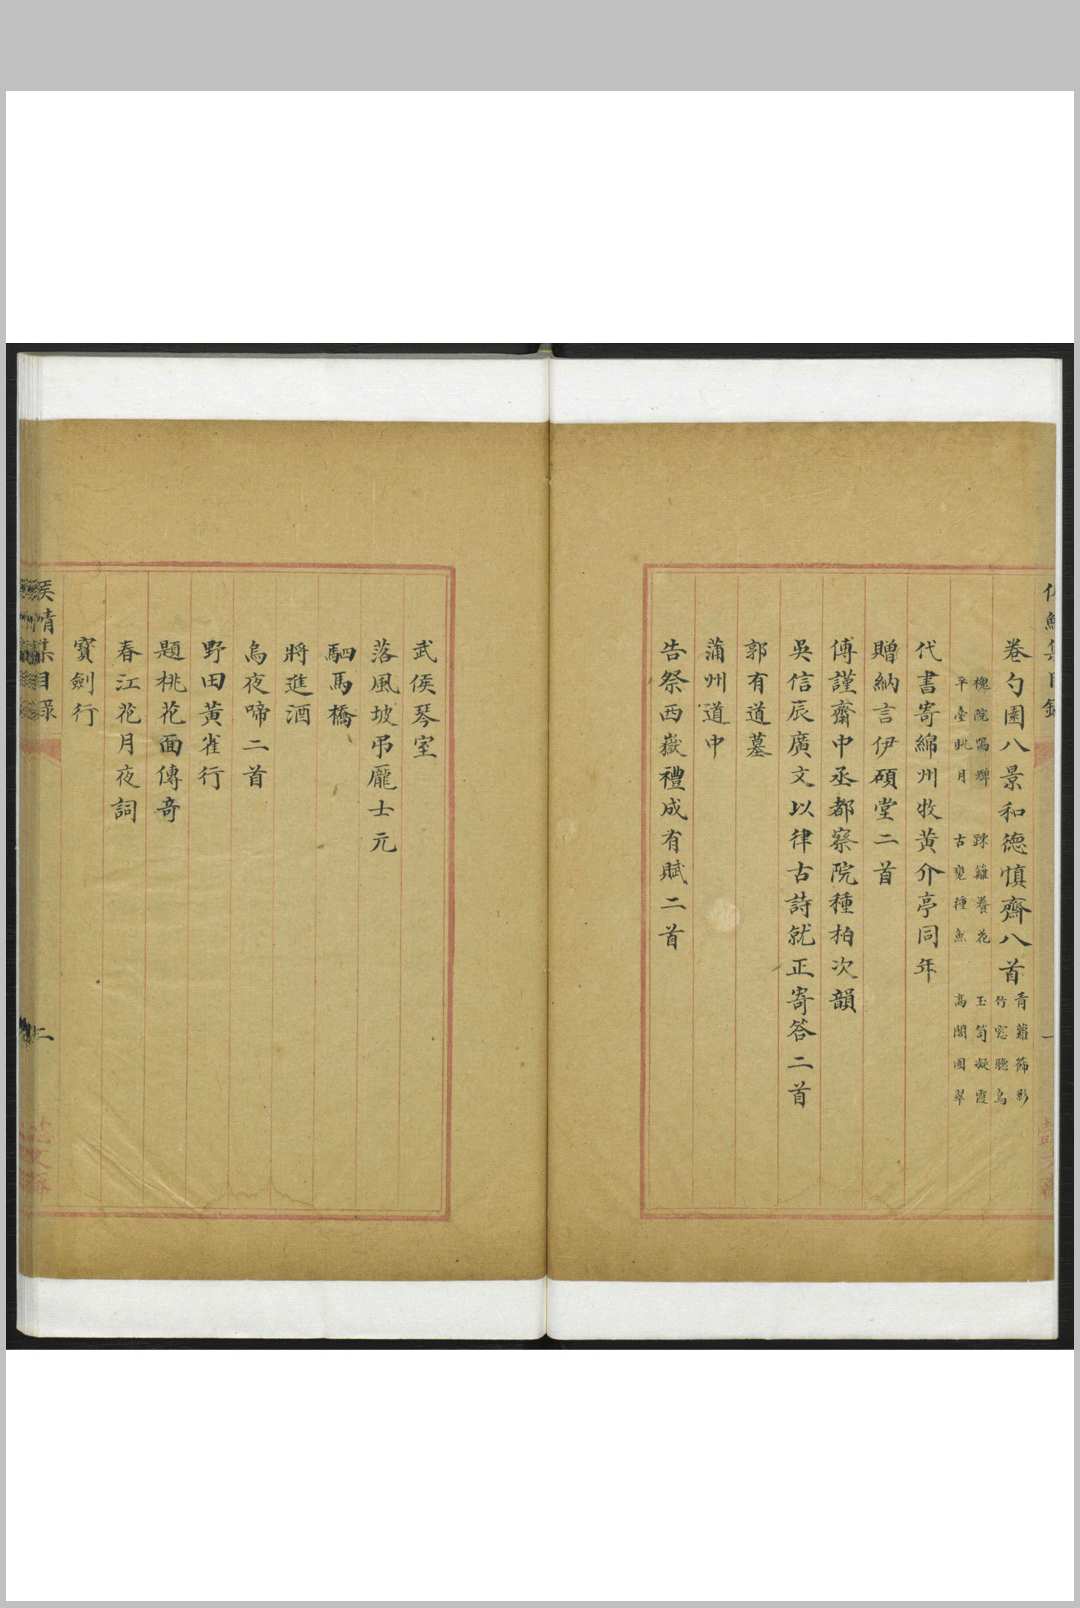 卷勺園八景和德慎齋八首
青蘿篩影
竹窓聽鳥
玉筍凝霞
高閣圍翠
疎籬養花
古甕種魚
槐院鳴蟬
平臺眺月
代書寄綿州牧黄介亭同年
贈納言伊碩堂二首
傅謹齋中丞都察院種柏次韻
吳信辰廣文以律古詩就正寄答二首
郭有道墓
蒲州道中
告祭西嶽禮成有賦二首
武侯琴室
落風坡弔龎士元
駟馬橋
將進酒
烏夜啼二首
野田黃雀行
題桃花面傳奇
春江花月夜詞
寶劍行
集目錄
二